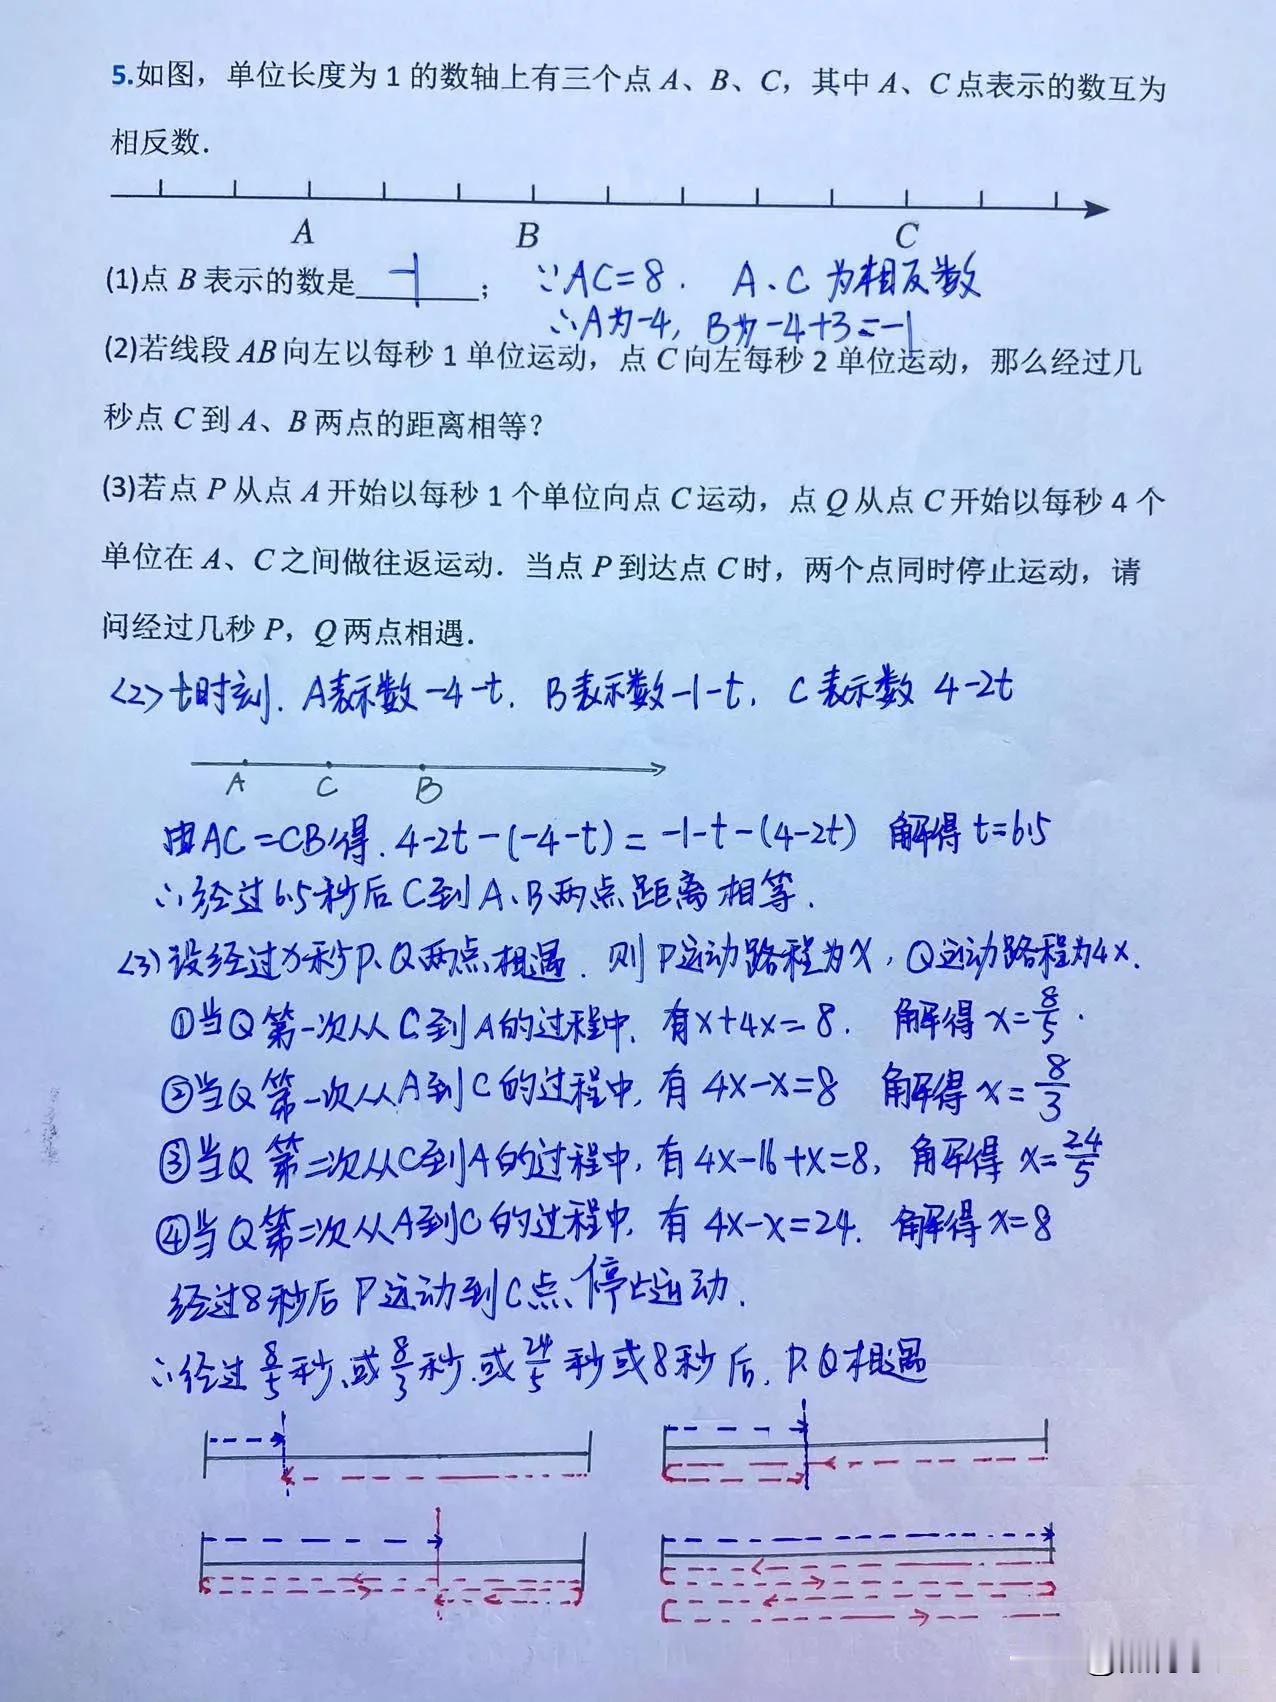 5.如图，单位长度为1的数轴上有三个点A、B、C，其中A、C点表示的数互为
相反数．
A B C
(1)点B表示的数是 -1 ； ∵AC=8. A、C为相反数
∴A为-4, B为-4+3=-1
(2)若线段AB向左以每秒1单位运动，点C向左每秒2单位运动，那么经过几
秒点C到A、B两点的距离相等？
(3)若点P从点A开始以每秒1个单位向点C运动，点Q从点C开始以每秒4个
单位在A、C之间做往返运动．当点P到达点C时，两个点同时停止运动，请
问经过几秒P，Q两点相遇．
<2>t时刻. A表示数-4-t. B表示数-1-t. C表示数 4-2t
A C B
由AC=CB得. 4-2t-(-4-t)=-1-t-(4-2t) 解得t=6.5
∴经过6.5秒后C到A、B两点距离相等.
<3)设经过x秒P、Q两点相遇. 则P运动路程为x, Q运动路程为4x.
①当Q第一次从C到A的过程中, 有x+4x=8. 解得x=8/5.
②当Q第一次从A到C的过程中, 有4x-x=8 解得x=8/3
③当Q第二次从C到A的过程中, 有4x-16+x=8, 解得x=24/5
④当Q第二次从A到C的过程中, 有4x-x=24. 解得x=8
经过8秒后P运动到C点、停止运动.
∴经过8/5秒、或8/3秒.或24/5秒或8秒后, P、Q相遇